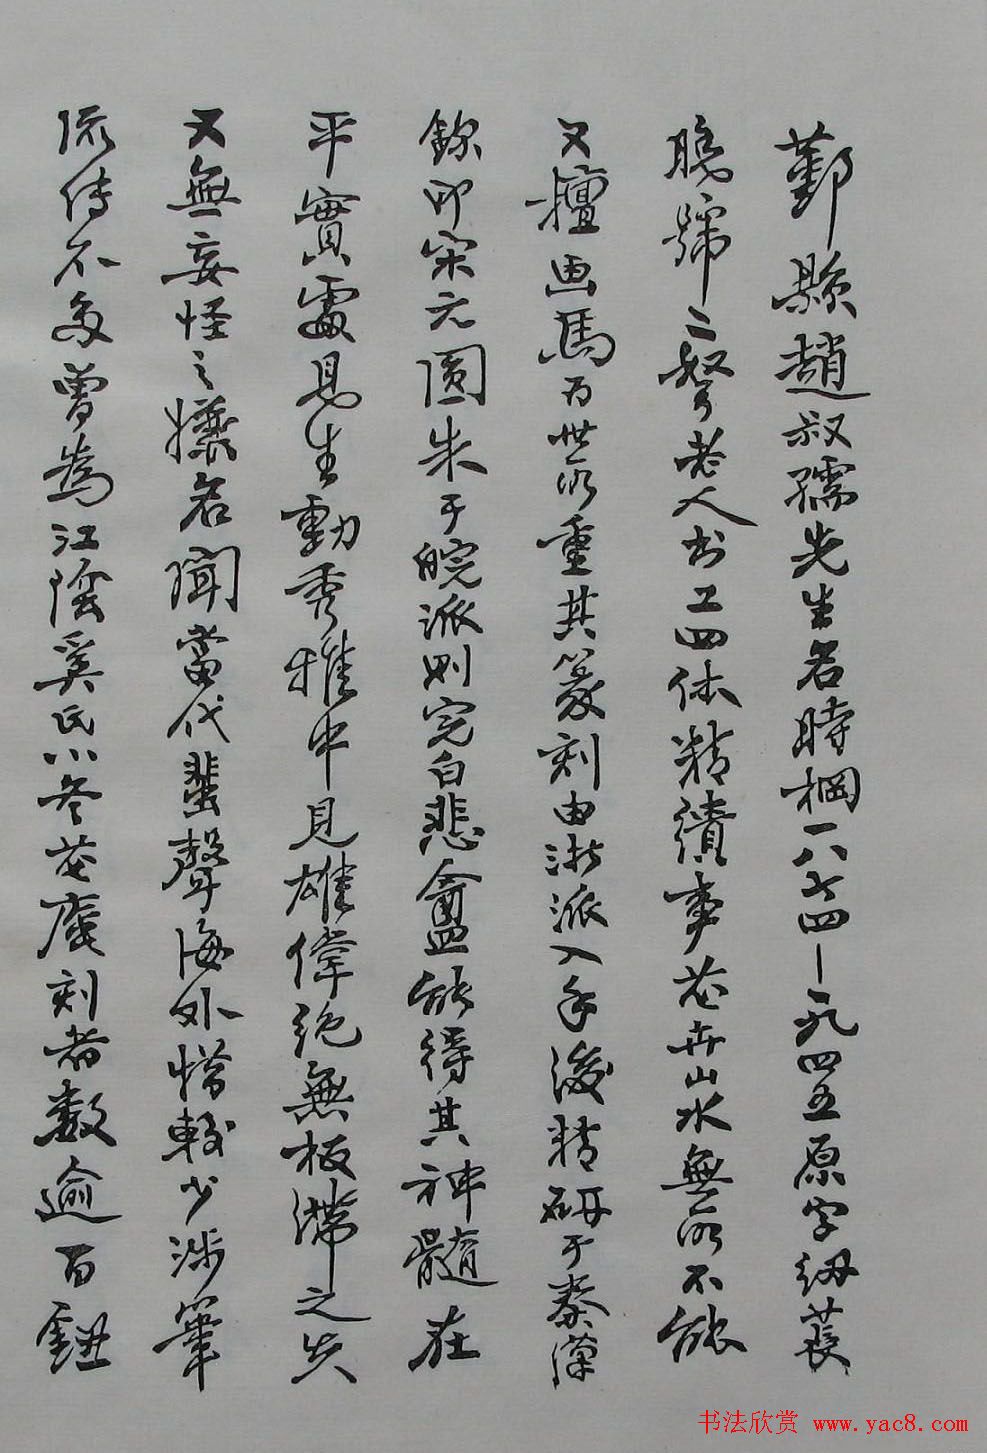 鄞縣趙叔孺先生名時棡一八七四—一九四五原字紉萇
晚號二弩老人书工四体精繢事花卉山水無所不能
又擅画馬为世所重其篆刻由浙派入手後精研于秦漢
鉨印宋元圆朱于皖派则完白悲盦能得其神髓在
平實處見生動秀雅中見雄偉绝無板滞之失
又無妄怪之嫌名聞當代蜚聲海外惜較少涉筆
流传不多曾為江陰奚氏小冬花庵刻者数逾百鈕
书法欣赏 www.yac8.com